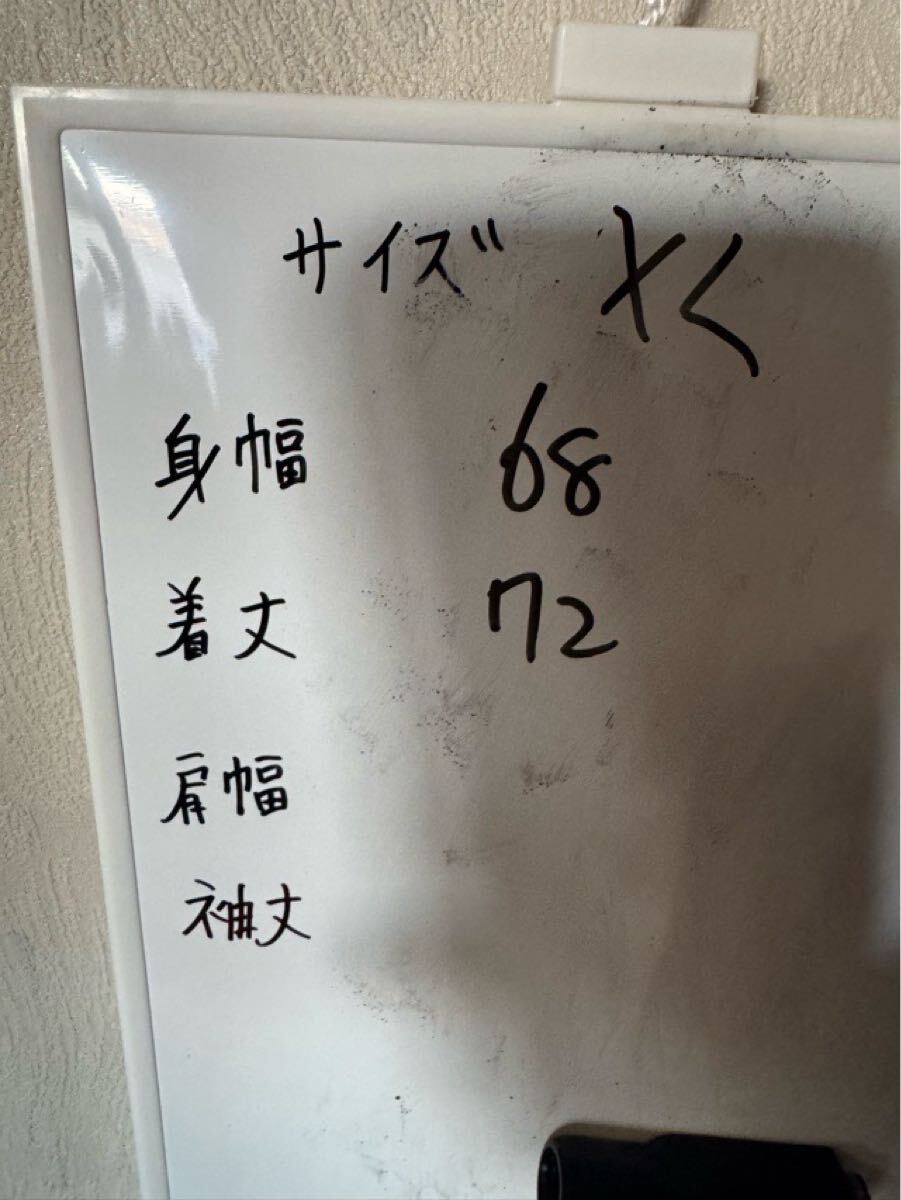 サイズ XL
身幅 68
着丈 72
肩幅
袖丈